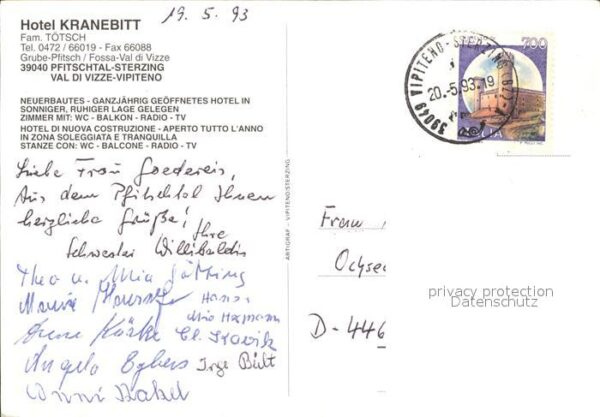 19. 5. 93
Hotel KRANEBITT
Fam. TÖTSCH
Tel. 0472 / 66019 - Fax 66088
Grube-Pfitsch / Fossa-Val di Vizze
39040 PFITSCHTAL-STERZING
VAL DI VIZZE-VIPITENO
NEUERBAUTES - GANZJÄHRIG GEÖFFNETES HOTEL IN
SONNIGER, RUHIGER LAGE GELEGEN
ZIMMER MIT: WC - BALKON - RADIO - TV
HOTEL DI NUOVA COSTRUZIONE - APERTO TUTTO L'ANNO
IN ZONA SOLEGGIATA E TRANQUILLA
STANZE CON: WC - BALCONE - RADIO - TV
Liebe Frau Goedereis,
Aus dem Pfitschtal Ihnen
herzliche Grüße!
Ihre
Schwester Willibaldis
Theo u. Mia
Hans
Angela Egbers Inge Bült
Anni
ARTIGRAF - VIPITENO/STERZING
39049 VIPITENO-STERZING (BZ)
20.-5.93.19
700
ITALIA
Frau
Ochse
D-446
privacy protection
Datenschutz